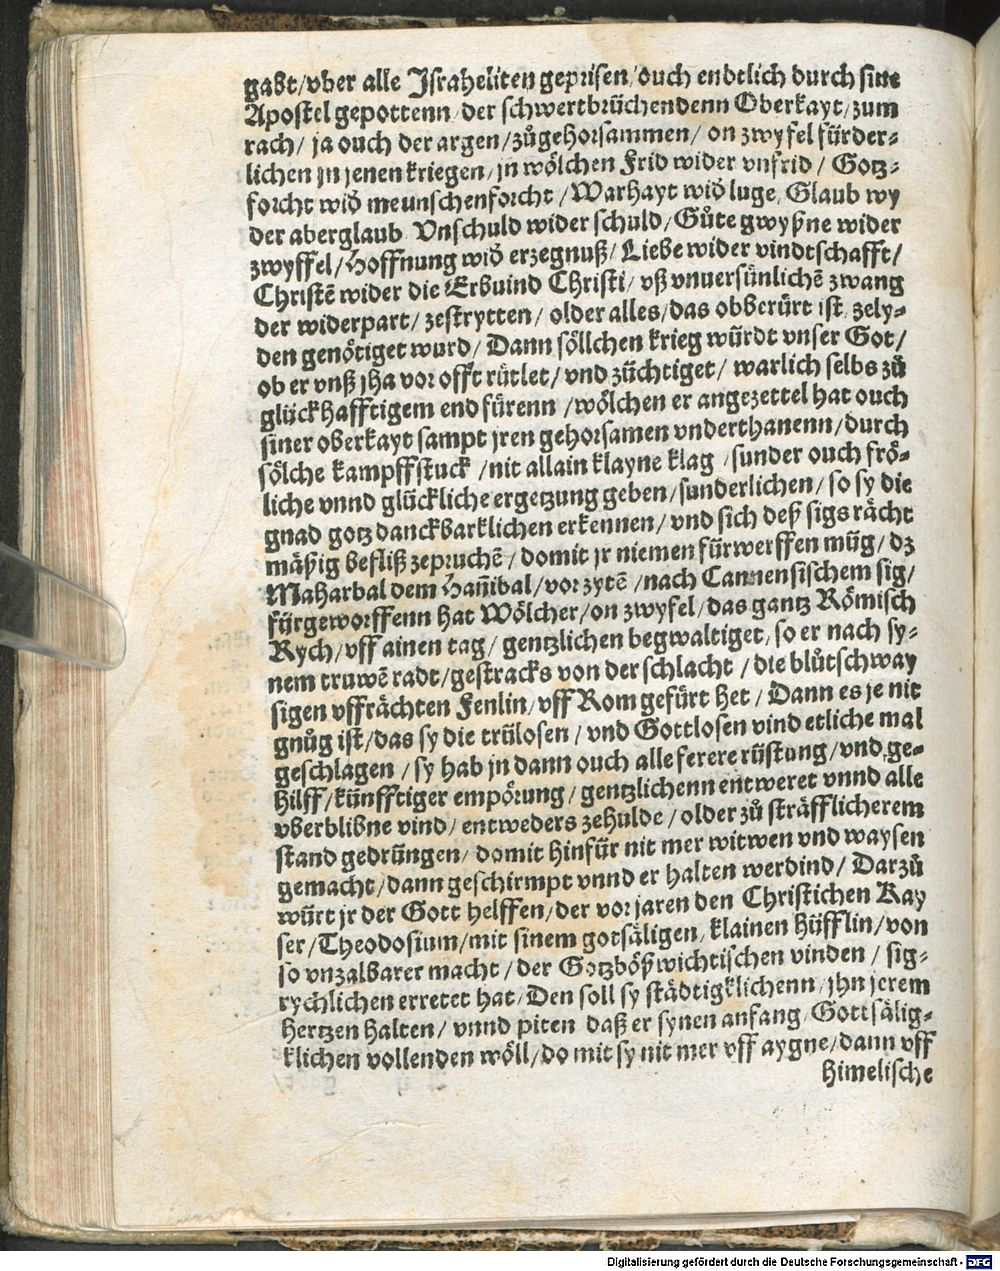 gabt/vber alle Jſraheliten gepriſen/ouch endtlich durch ſine
Apoſtel gepottenn/der ſchwertbrüchendenn Oberkayt/zum
rach/ ja ouch der argen/zůgehorſammen/ on zwyfel fürder⸗
lichen jn jenen kriegen/jn wölchen Frid wider vnfrid/ Gotz⸗
forcht wiđ meunſchenforcht/Warhayt wiđ luge/Glaub wy
der aberglaub Vnſchuld wider ſchuld/Gůte gwyßne wider
zwyffel/Hoffnung wiđ erzegnuß/Liebe wider vindtſchafft/
Chriſtē wider die Erbuind Chriſti/vß vnuerſünlichē zwang
der widerpart/ zeſtrytten/ older alles/das obberürt iſt zely⸗
den genötiget wurd/ Dann ſöllchen krieg würdt vnſer Got/
ob er vnß jha vor offt rütlet/vnd züchtiget/ warlich ſelbs zů
glückhafftigem end fürenn/wölchen er angezettel hat ouch
ſiner oberkayt ſampt jren gehorſamen vnderthanenn/durch
ſölche kampffſtuck/nit allain klayne klag/ſunder ouch frö⸗
liche vnnd glückliche ergetzung geben/ſunderlichen/ ſo ſy die
gnad gotz danckbarklichen erkennen/vnd ſich deß ſigs rächt
mäßig befliß zepruchē/domit jr niemen fürwerffen müg/dz
Maharbal dem Hañibal/vor zytē/nach Cannenſiſchem ſig/
fürgeworffenn hat Wölcher/on zwyfel/das gantz Römiſch
Rych/vff ainen tag/ gentzlichen begwaltiget/ſo er nach ſy⸗
nem truwē radt/geſtracks von der ſchlacht/die blůtſchway
ſigen vffrächten Fenlin/vff Rom gefürt het/ Dann es je nit
gnůg iſt/das ſy die trüloſen/vnd Gottloſen vind etliche mal
geſchlagen/ſy hab jn dann ouch alle ferere rüſtung/vnd ge⸗
hilff/künfftiger empörung/gentzlichenn entweret vnnd alle
vberblibne vind/entweders zehulde/older zů ſträfflicherem
ſtand gedrüngen/domit hinfür nit mer witwen vnd wayſen
gemacht/dann geſchirmpt vnnd er halten werdind/ Darzů
würt jr der Gott helffen/der vor jaren den Chriſtichen Kay
ſer/Theodoſium/mit ſinem gotſäligen/klainen hüfflin/von
ſo vnzalbarer macht/der Gotzbößwichtiſchen vinden/ ſig⸗
rychlichen erretet hat/Den ſoll ſy ſtädtigklichenn/jhn jerem
Hertzen halten/ vnnd piten daß er ſynen anfang/Gottſälig⸗
klichen vollenden wöll/do mit ſy nit mer vff aygne/dann vff
himeliſche
Digitalisierung gefördert durch die Deutsche Forschungsgemeinschaft - DFG